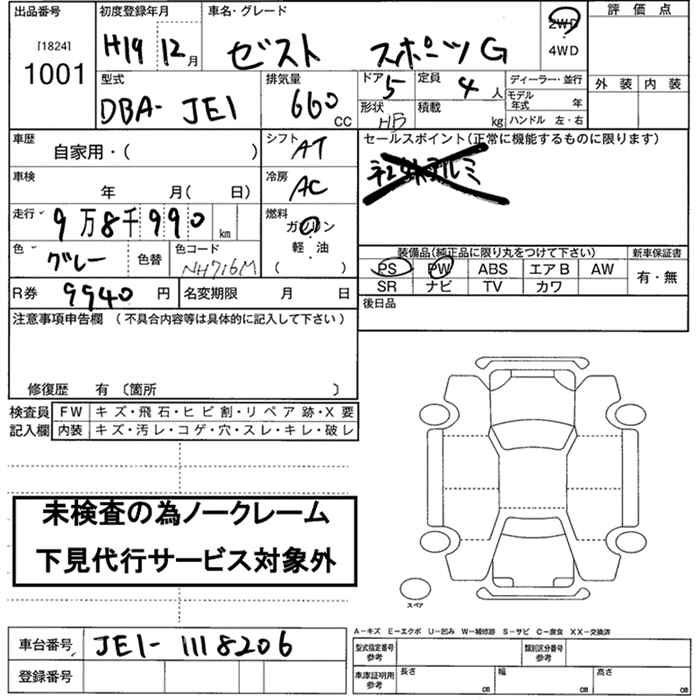 出品番号
[1824]
1001
初度登録年月
H19 12月
車名・グレード
ゼスト スポーツG
2WD
4WD
評価点
外装 内装
型式
DBA- JE1
排気量
660 CC
ドア 5
形状 HB
定員 4人
積載 kg
ディーラー・並行
モデル年式 年
ハンドル 左・右
車歴
自家用・( )
シフト AT
セールスポイント(正常に機能するものに限ります)
アルミ
車検
年 月( 日)
冷房 AC
走行
9万8千990 km
燃料
ガソリン
軽・油
( )
色 グレー 色替
色コード NH716M
装備品(純正品に限り丸をつけて下さい)
PS PW ABS エアB AW
SR ナビ TV カワ
新車保証書
有・無
R券 9940円
名変期限 月 日
後日品
注意事項申告欄 (不具合内容等は具体的に記入して下さい)
修復歴 有 〔箇所 〕
検査員記入欄
FW キズ・飛石・ヒビ割・リペア跡・X要
内装 キズ・汚レ・コゲ・穴・スレ・キレ・破レ
未検査の為ノークレーム
下見代行サービス対象外
スペア
車台番号 JE1-1118206
登録番号
A-キズ E-エクボ U-凹み W-補修跡 S-サビ C-腐食 XX-交換済
型式指定番号 参考
類別区分番号 参考
車庫証明用 参考
長さ cm 幅 cm 高さ cm